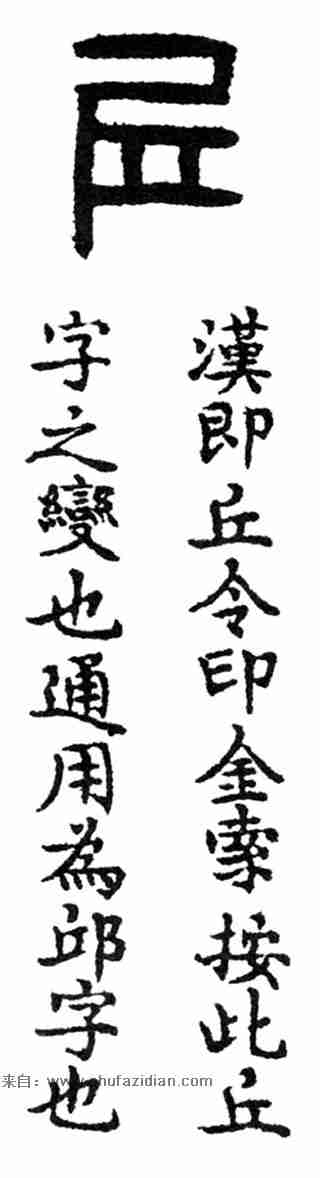 漢即丘令印金索按此丘
字之變也通用為邱字也
来自：www.shufazidian.com